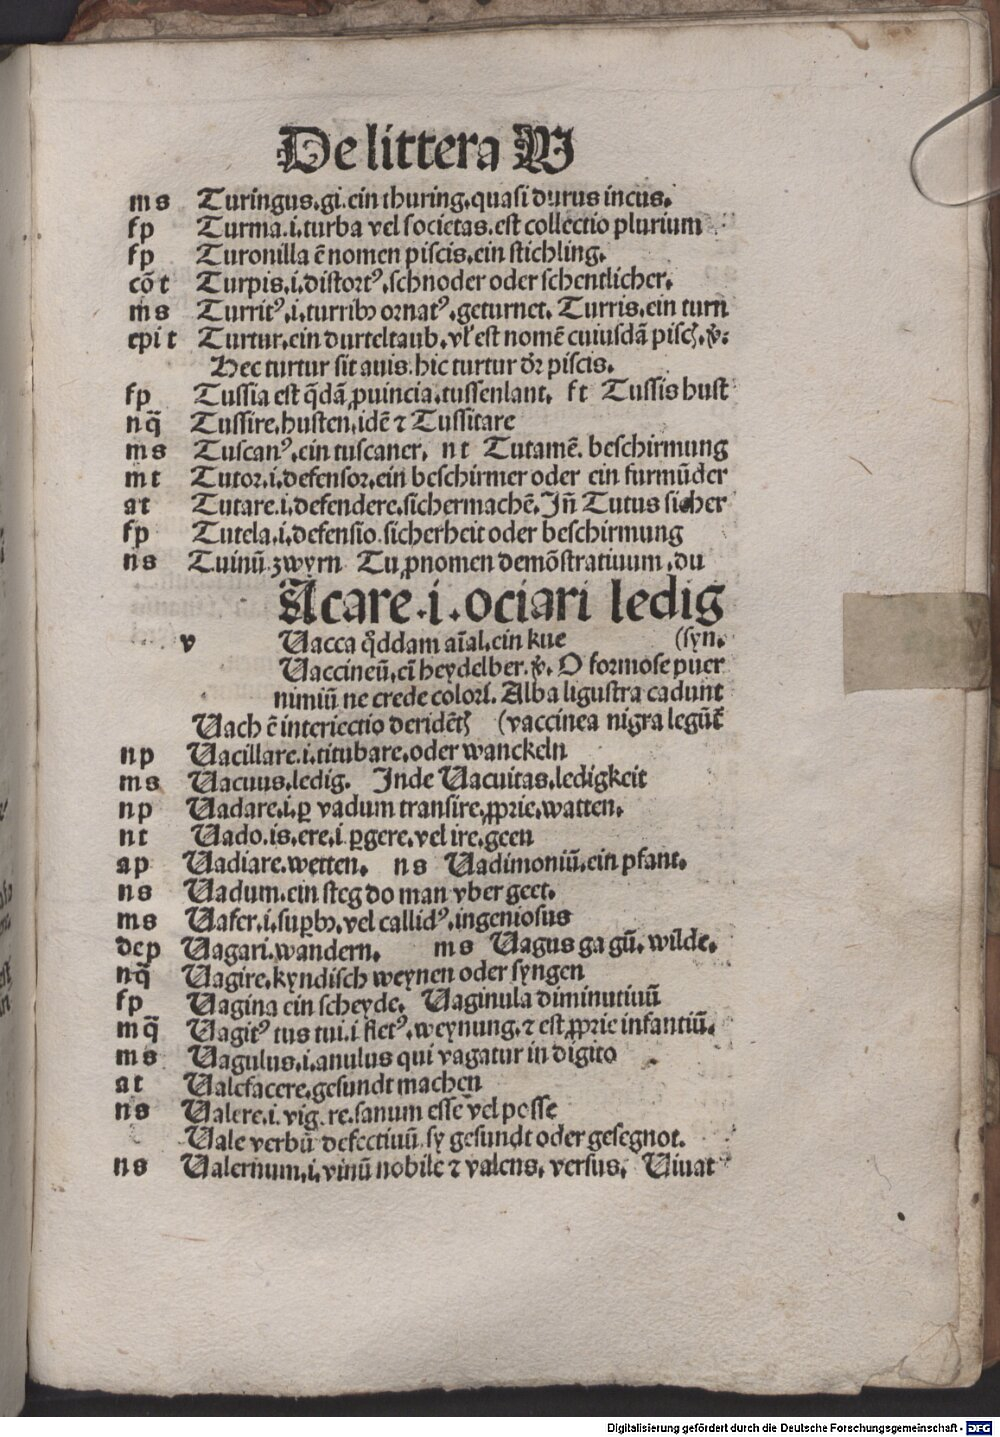 De littera W
ms Turingus.gi.ein thuring.quasi durus incus.
fp Turma.i.turba vel societas.est collectio plurium
fp Turonilla ē nomen piscis.ein stichling.
cōt Turpis.i.distortꝰ.schnoder oder schentlicher.
ms Turritꝰ.i.turribꝫ ornatꝰ.geturnet. Turris.ein turn
epi t Turtur.ein durteltaub.vl' est nomē cuiusdā pisc̨.v̓:
Hec turtur sit auis.hic turtur dr̄ piscis.
fp Tussia est q̄dā ꝓuincia.tussenlant. ft Tussis hust
nq̄ Tussire.husten.idē ⁊ Tussitare
ms Tuscanꝰ.ein tuscaner. nt Tutamē. beschirmung
mt Tutor.i.defensor.ein beschirmer oder ein furmūder
at Tutare.i.defendere.sichermachē.Jn̄ Tutus sicher
fp Tutela.i.defensio.sicherheit oder beschirmung
ns Tuinū.zwyrn Tu ꝓnomen demōstratiuum.du
Acare.i.ociari ledig
v Uacca qddam aīal.ein kue (syn.
Uaccineū.eī heydelber.v̓. O formose puer
nimiū ne crede colori. Alba ligustra cadunt
Uach ē interiectio deridēt̨ (vaccinea nigra legūt̄
np Uacillare.i.titubare.oder wanckeln
ms Uacuus.ledig. Jnde Uacuitas.ledigkeit
np Uadare.i.ꝑ vadum transire.ꝓprie.watten.
nt Uado.is.ere.i ꝑgere.vel ire.geen
ap Uadiare.wetten. ns Uadimoniū.ein pfant.
ns Uadum.ein steg do man vber geet.
ms Uafer.i.suꝑbꝫ.vel callidꝰ.ingeniosus
dep Uagari.wandern. ms Uagus ga gū.wilde.
nq̄ Uagire.kyndisch weynen oder syngen
fp Uagina ein scheyde. Uaginula diminutiuū
mq̄ Uagitꝰ tus tui.i fletꝰ.weynung.⁊ est ꝓprie infantiū.
ms Uagulus.i.anulus qui vagatur in digito
at Ualefacere.gesundt machen
ns Ualere.i.vig.re.sanum esse vel posse
Uale verbū defectiuū.sy gesundt oder gesegnot.
ns Ualernum.i.vinū nobile ⁊ valens. versus. Uiuat
Digitalisierung gefördert durch die Deutsche Forschungsgemeinschaft - DFG